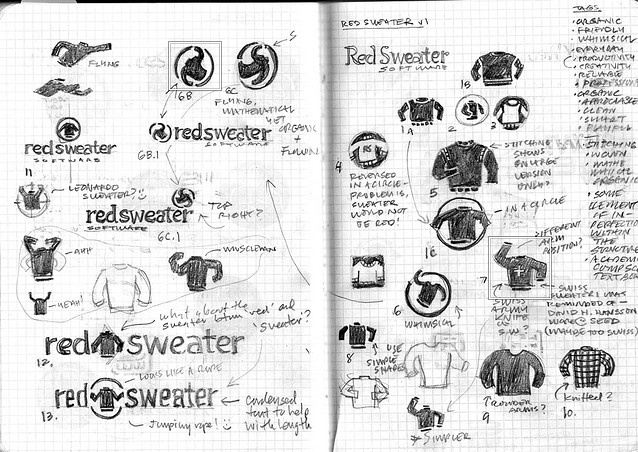 FLYING
6B
6C
S
FLYING,
MATHEMATICAL
YET
ORGANIC
+
FLOWING
redsweater
SOFTWARE
11
6B.1
redsweater
LEONARDO
SWEATER?
redsweater
SOFTWARE
6C.1
TOP
RIGHT?
AHH
MUSCLEMAN
YEAH!
what about the
sweater between 'red' and
'sweater'?
12.
red sweater
LOOKS LIKE A ROPE
13.
red sweater
Jumping rope!
condensed
text to help
with length
RED SWEATER V1
Red Sweater
SOFTWARE
1B
1A
2
3
4
REVERSED
IN A CIRCLE-
PROBLEM IS,
SWEATER
WOULD NOT
BE RED!
5
STITCHING
SHOWS
ENLARGE
VERSION
ONLY?
IN A CIRCLE
1C
DIFFERENT
ARM
POSITION?
7
6
WHIMSICAL
SWISS
ARMY
KNIFE
SWISS
SWEATER I WAS
REMINDED OF—
DAVID H. HANSSON
WORE @ SEED
(MAYBE TOO SWISS)
8
USE
SIMPLE
SHAPES
SIMPLER
9
ROUNDER
ARMS?
Knitted?
10.
TAGS
• ORGANIC
• FRIENDLY
• WHIMSICAL
• EVERYDAY
• PRODUCTIVITY
• CREATIVITY
• RELIABLE
• PROFESSIONAL
• ORGANIC
• APPROACHABLE
• CLEAN
• SMART
• PLAYFUL
• STITCHING
• WOVEN
• MATHE
MATICAL
ORGANIC
• SOME
ELEMENT
OF IM-
PERFECTION
WITHIN
THE
STRUCTURE